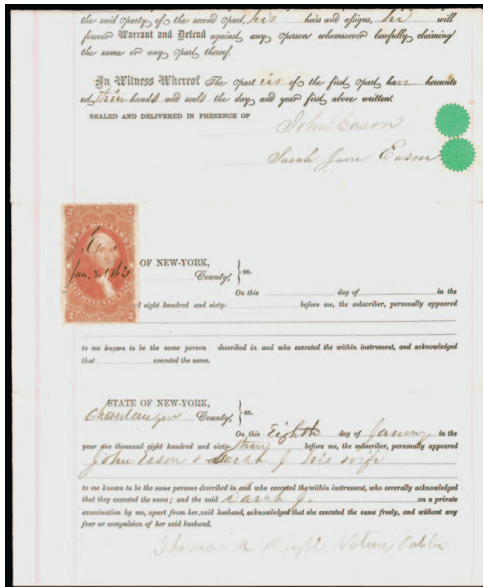 the said party of the second part, his heirs and assigns, he will
forever Warrant and Defend against any person whomsoever lawfully claiming
the same or any part thereof.
In Witness Whereof The part ies of the first part, have hereunto
set their hands and seals the day and year first above written.
SEALED AND DELIVERED IN PRESENCE OF
John Eason
Sarah Jane Eason
2 2
Jan. 8. 1863
OF NEW-YORK,
County, } ss.
On this day of in the
d eight hundred and sixty- before me, the subscriber, personally appeared
to me known to be the same person described in and who executed the within instrument, and acknowledged
that executed the same.
STATE OF NEW YORK,
Chautauque County, } ss.
On this Eighth day of January in the
year one thousand eight hundred and sixty-three before me, the subscriber, personally appeared
John Eason & Sarah J. his wife
to me known to be the same persons described in and who executed the within instrument, who severally acknowledged
that they executed the same; and the said Sarah J. on a private
examination by me, apart from her said husband, acknowledged that she executed the same freely, and without any
fear or compulsion of her said husband.
Thomas A. Notary Public